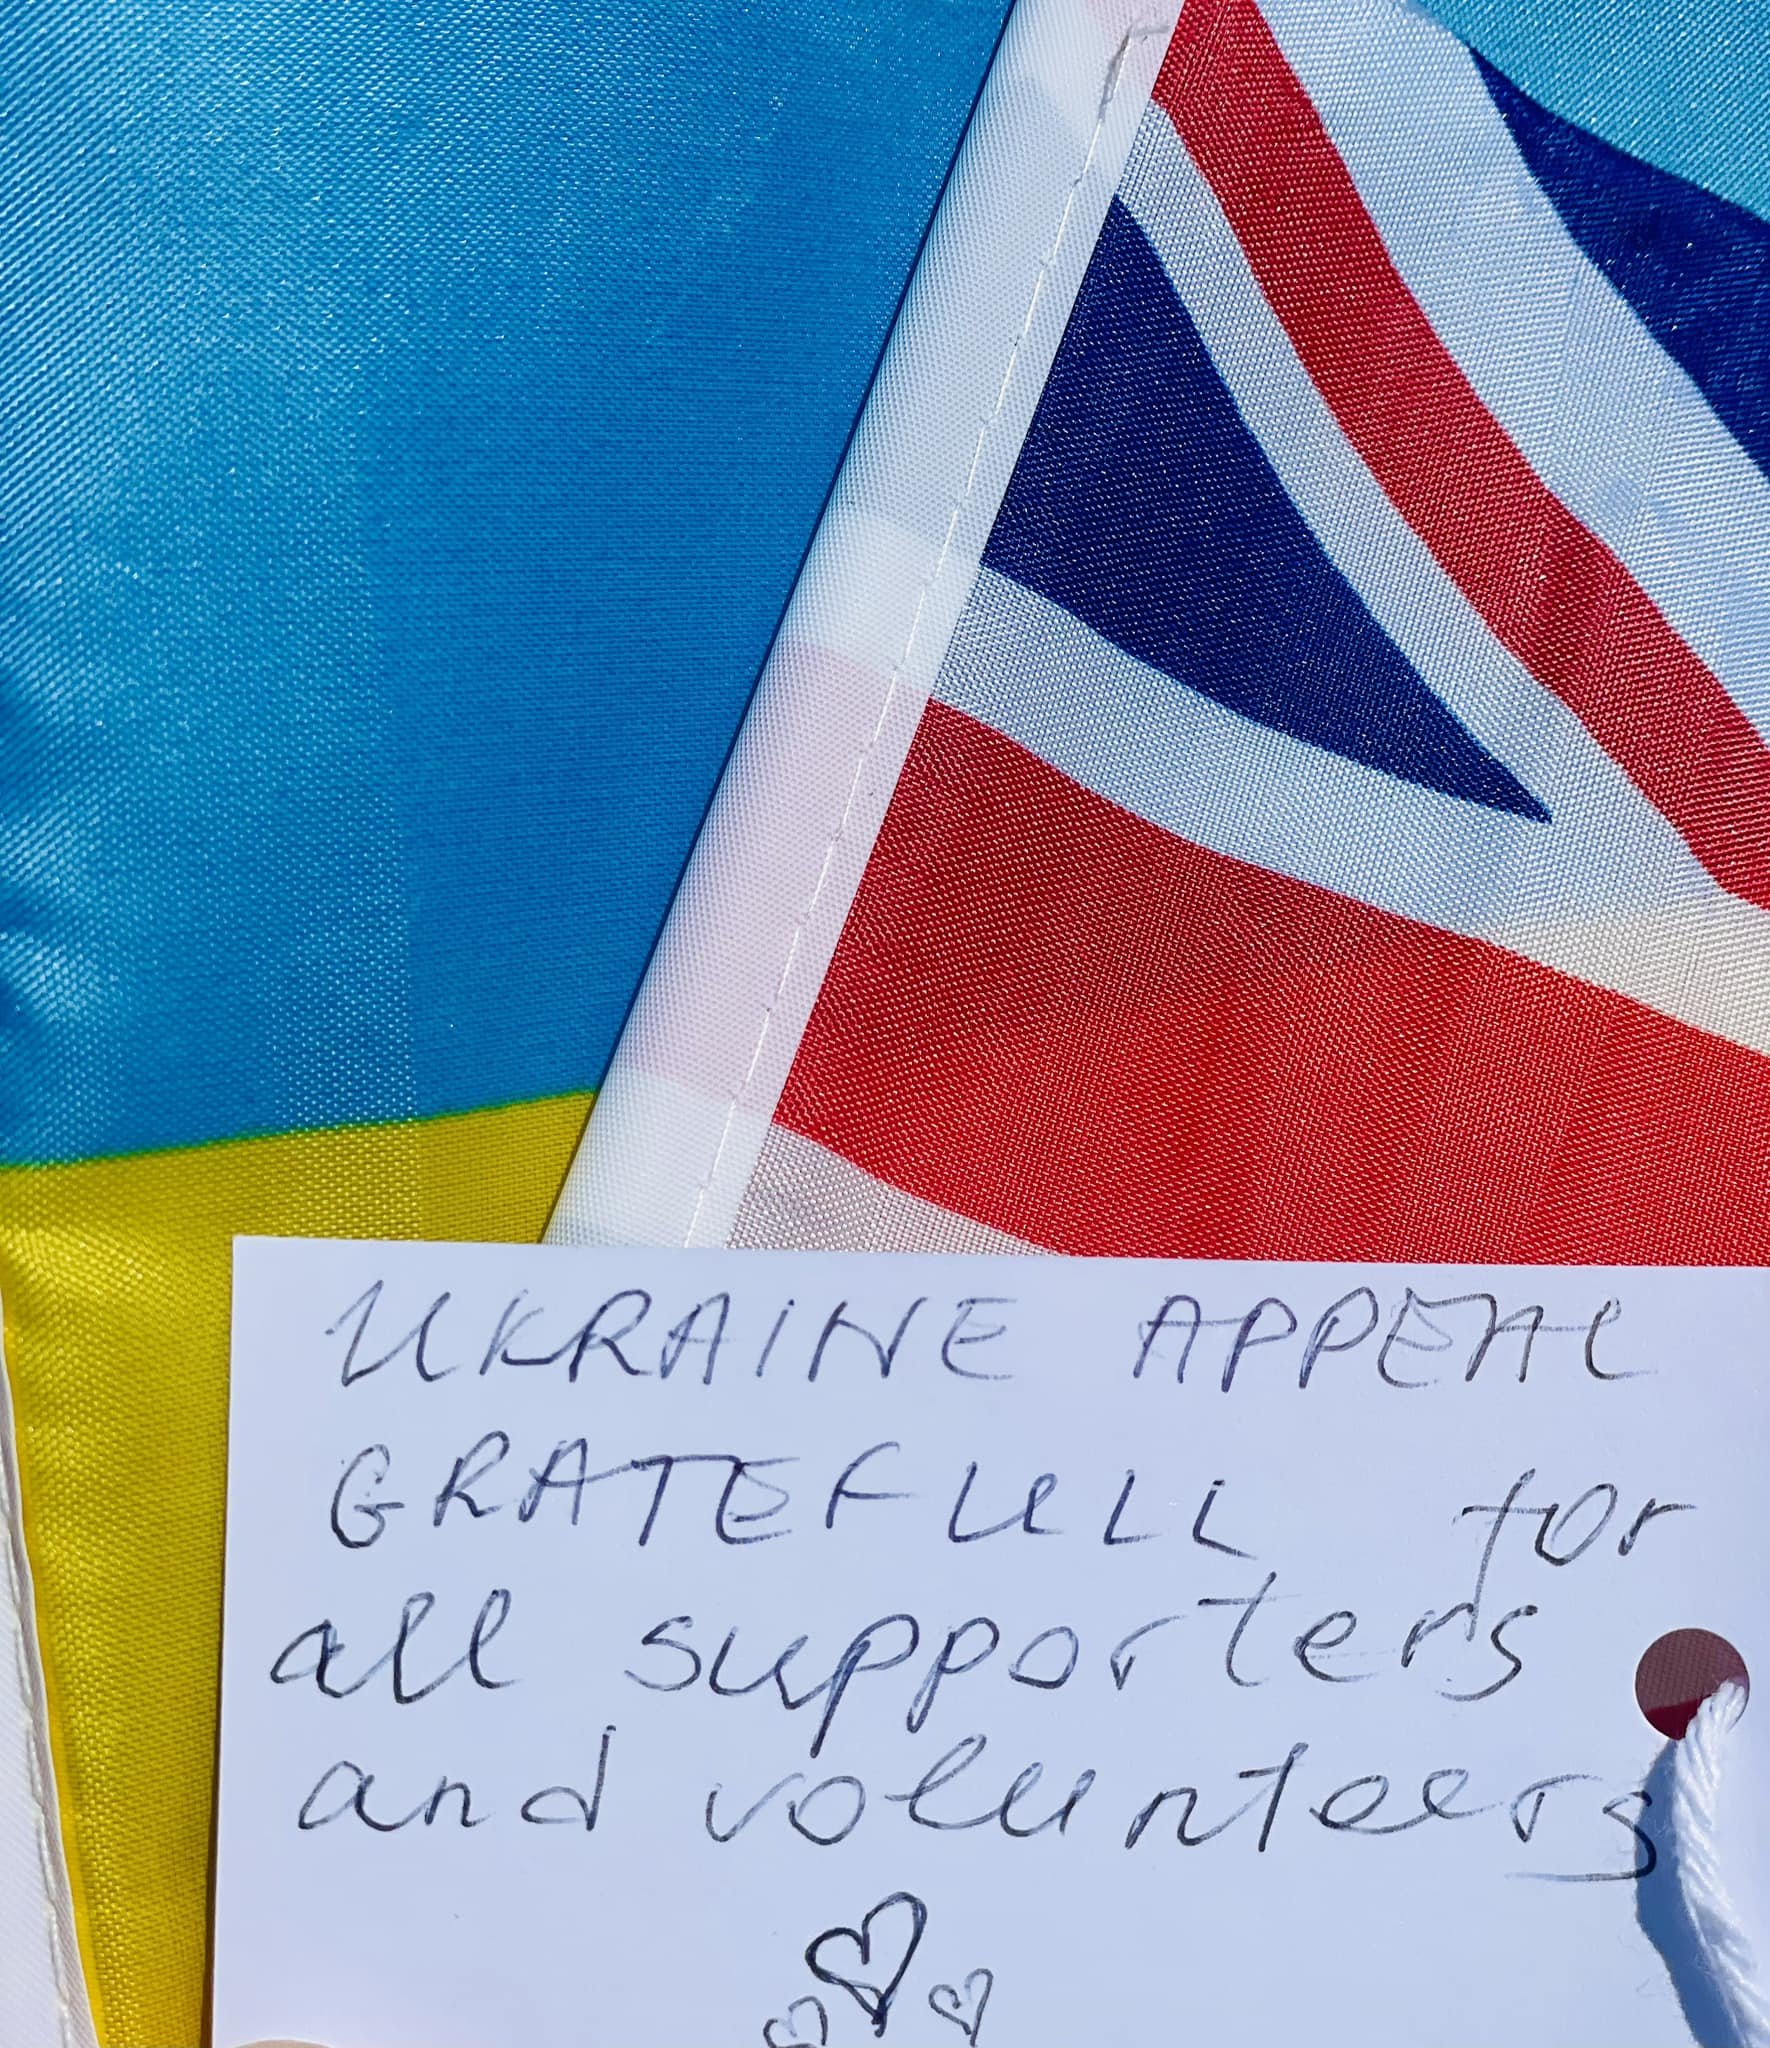 UKRAINE APPEAL
GRATEFULL for
all supporters
and volunteers